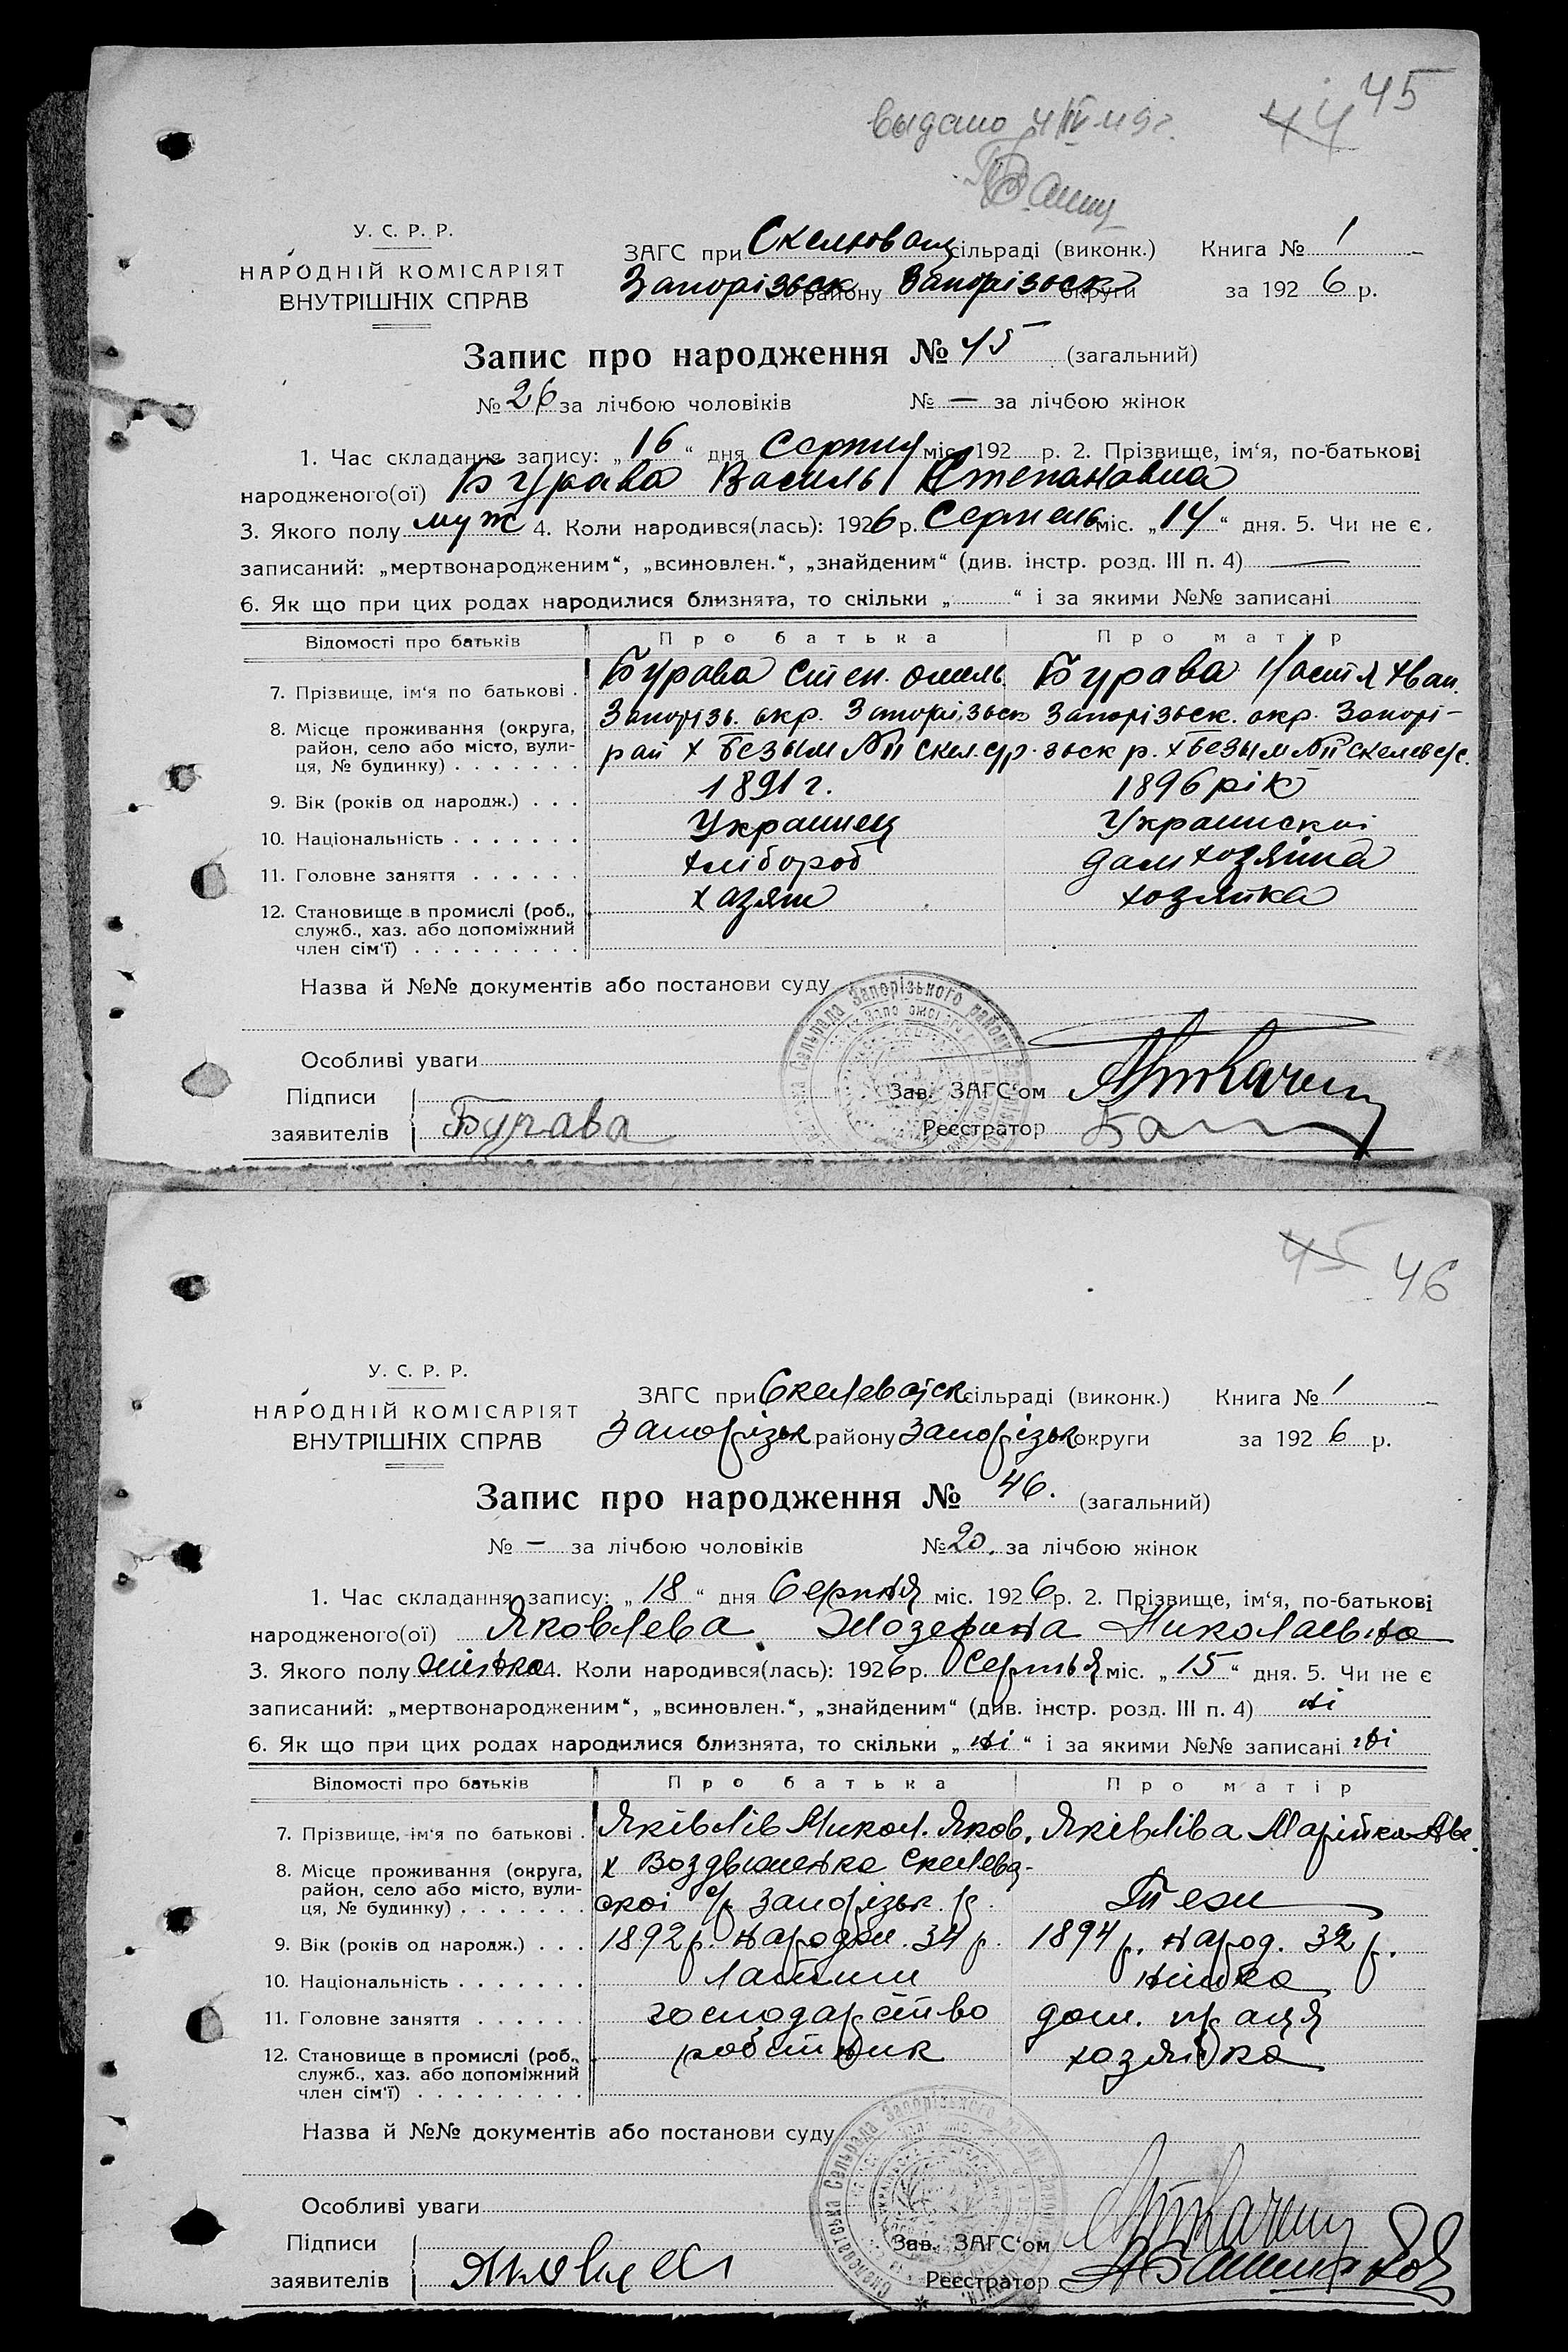 45
44
выдано 4/IV 49 г.
У. С. Р. Р.
НАРОДНІЙ КОМІСАРІЯТ
ВНУТРІШНІХ СПРАВ
ЗАГС при сільраді (виконк.) Книга № 1
Запорізьск району Запорізьск округи за 1926 р.
Запис про народження № 45 (загальний)
№ 26 за лічбою чоловіків № — за лічбою жінок
1. Час складання запису: „16“ дня Серпня міс. 192 р. 2. Прізвище, ім‘я, по-батькові
народженого(ої) Бурава Василь Степановиа
3. Якого полу муж 4. Коли народився(лась): 1926 р. Серпень міс. „14“ дня. 5. Чи не є
записаний: „мертвонародженим“, „всиновлен.“, „знайденим“ (див. інстр. розд. III п. 4) —
6. Як що при цих родах народилися близнята, то скільки „ “ і за якими №№ записані
Відомості про батьків Про батька Про матір
7. Прізвище, ім‘я по батькові . Бурава Степ. Омель. Бурава Настя Иван.
8. Місце проживання (округа, Запорізь. окр. Запорізьск Запорізьск. окр. Запорі-
район, село або місто, вули- рай х Безым №II Скел.с/р. зьск р. х Безым №II
ця, № будинку) . . . . . . .
9. Вік (років од народж.) . . . 1891 г. 1896 рік
10. Національність . . . . . . . Украинец Украинскиі
11. Головне заняття . . . . . . хлібороб дом хозяйка
12. Становище в промислі (роб., хазяин хозяйка
служб., хаз. або допоміжний
член сім‘ї) . . . . . . . . .
Назва й №№ документів або постанови суду
Особливі уваги
Підписи Зав. ЗАГС‘ом
заявителів Бурава Реєстратор
45
46
У. С. Р. Р.
НАРОДНІЙ КОМІСАРІЯТ
ВНУТРІШНІХ СПРАВ
ЗАГС при Скелеватск сільраді (виконк.) Книга № 1
Запорізьк району Запорізьк округи за 1926 р.
Запис про народження № 46. (загальний)
№ – за лічбою чоловіків № 20. за лічбою жінок
1. Час складання запису: „18“ дня Серпня міс. 1926 р. 2. Прізвище, ім‘я, по-батькові
народженого(ої) Яковлева Жозефина Николаевна
3. Якого полу жінка 4. Коли народився(лась): 1926 р. Серпня міс. „15“ дня. 5. Чи не є
записаний: „мертвонародженим“, „всиновлен.“, „знайденим“ (див. інстр. розд. III п. 4) ні
6. Як що при цих родах народилися близнята, то скільки „ні“ і за якими №№ записані ні
Відомості про батьків Про батька Про матір
7. Прізвище, ім‘я по батькові . Яківлів Микол. Яков. Яківліва Марійка
8. Місце проживання (округа, х Воздвиженка Скелева-
район, село або місто, вули- скоі с/р Запорізьк. р. Теж
ця, № будинку) . . . . . . .
9. Вік (років од народж.) . . . 1892 р. народж. 34 р. 1894 р. народ. 32 р.
10. Національність . . . . . . . Латиш німка
11. Головне заняття . . . . . . господарство дом. праця
12. Становище в промислі (роб., робітник хозяйка
служб., хаз. або допоміжний
член сім‘ї) . . . . . . . . .
Назва й №№ документів або постанови суду
Особливі уваги
Підписи Зав. ЗАГС‘ом
заявителів Реєстратор